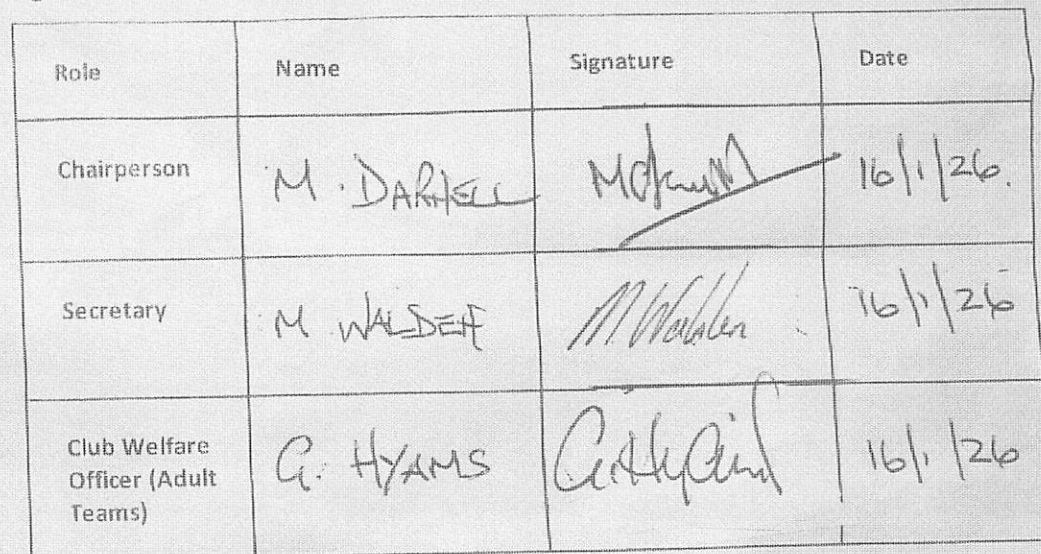 Role Name Signature Date
Chairperson M. DARNELL 16/1/26.
Secretary M WALDEN M. Walden 16/1/26
Club Welfare
Officer (Adult
Teams) G. HYAMS 16/1/26